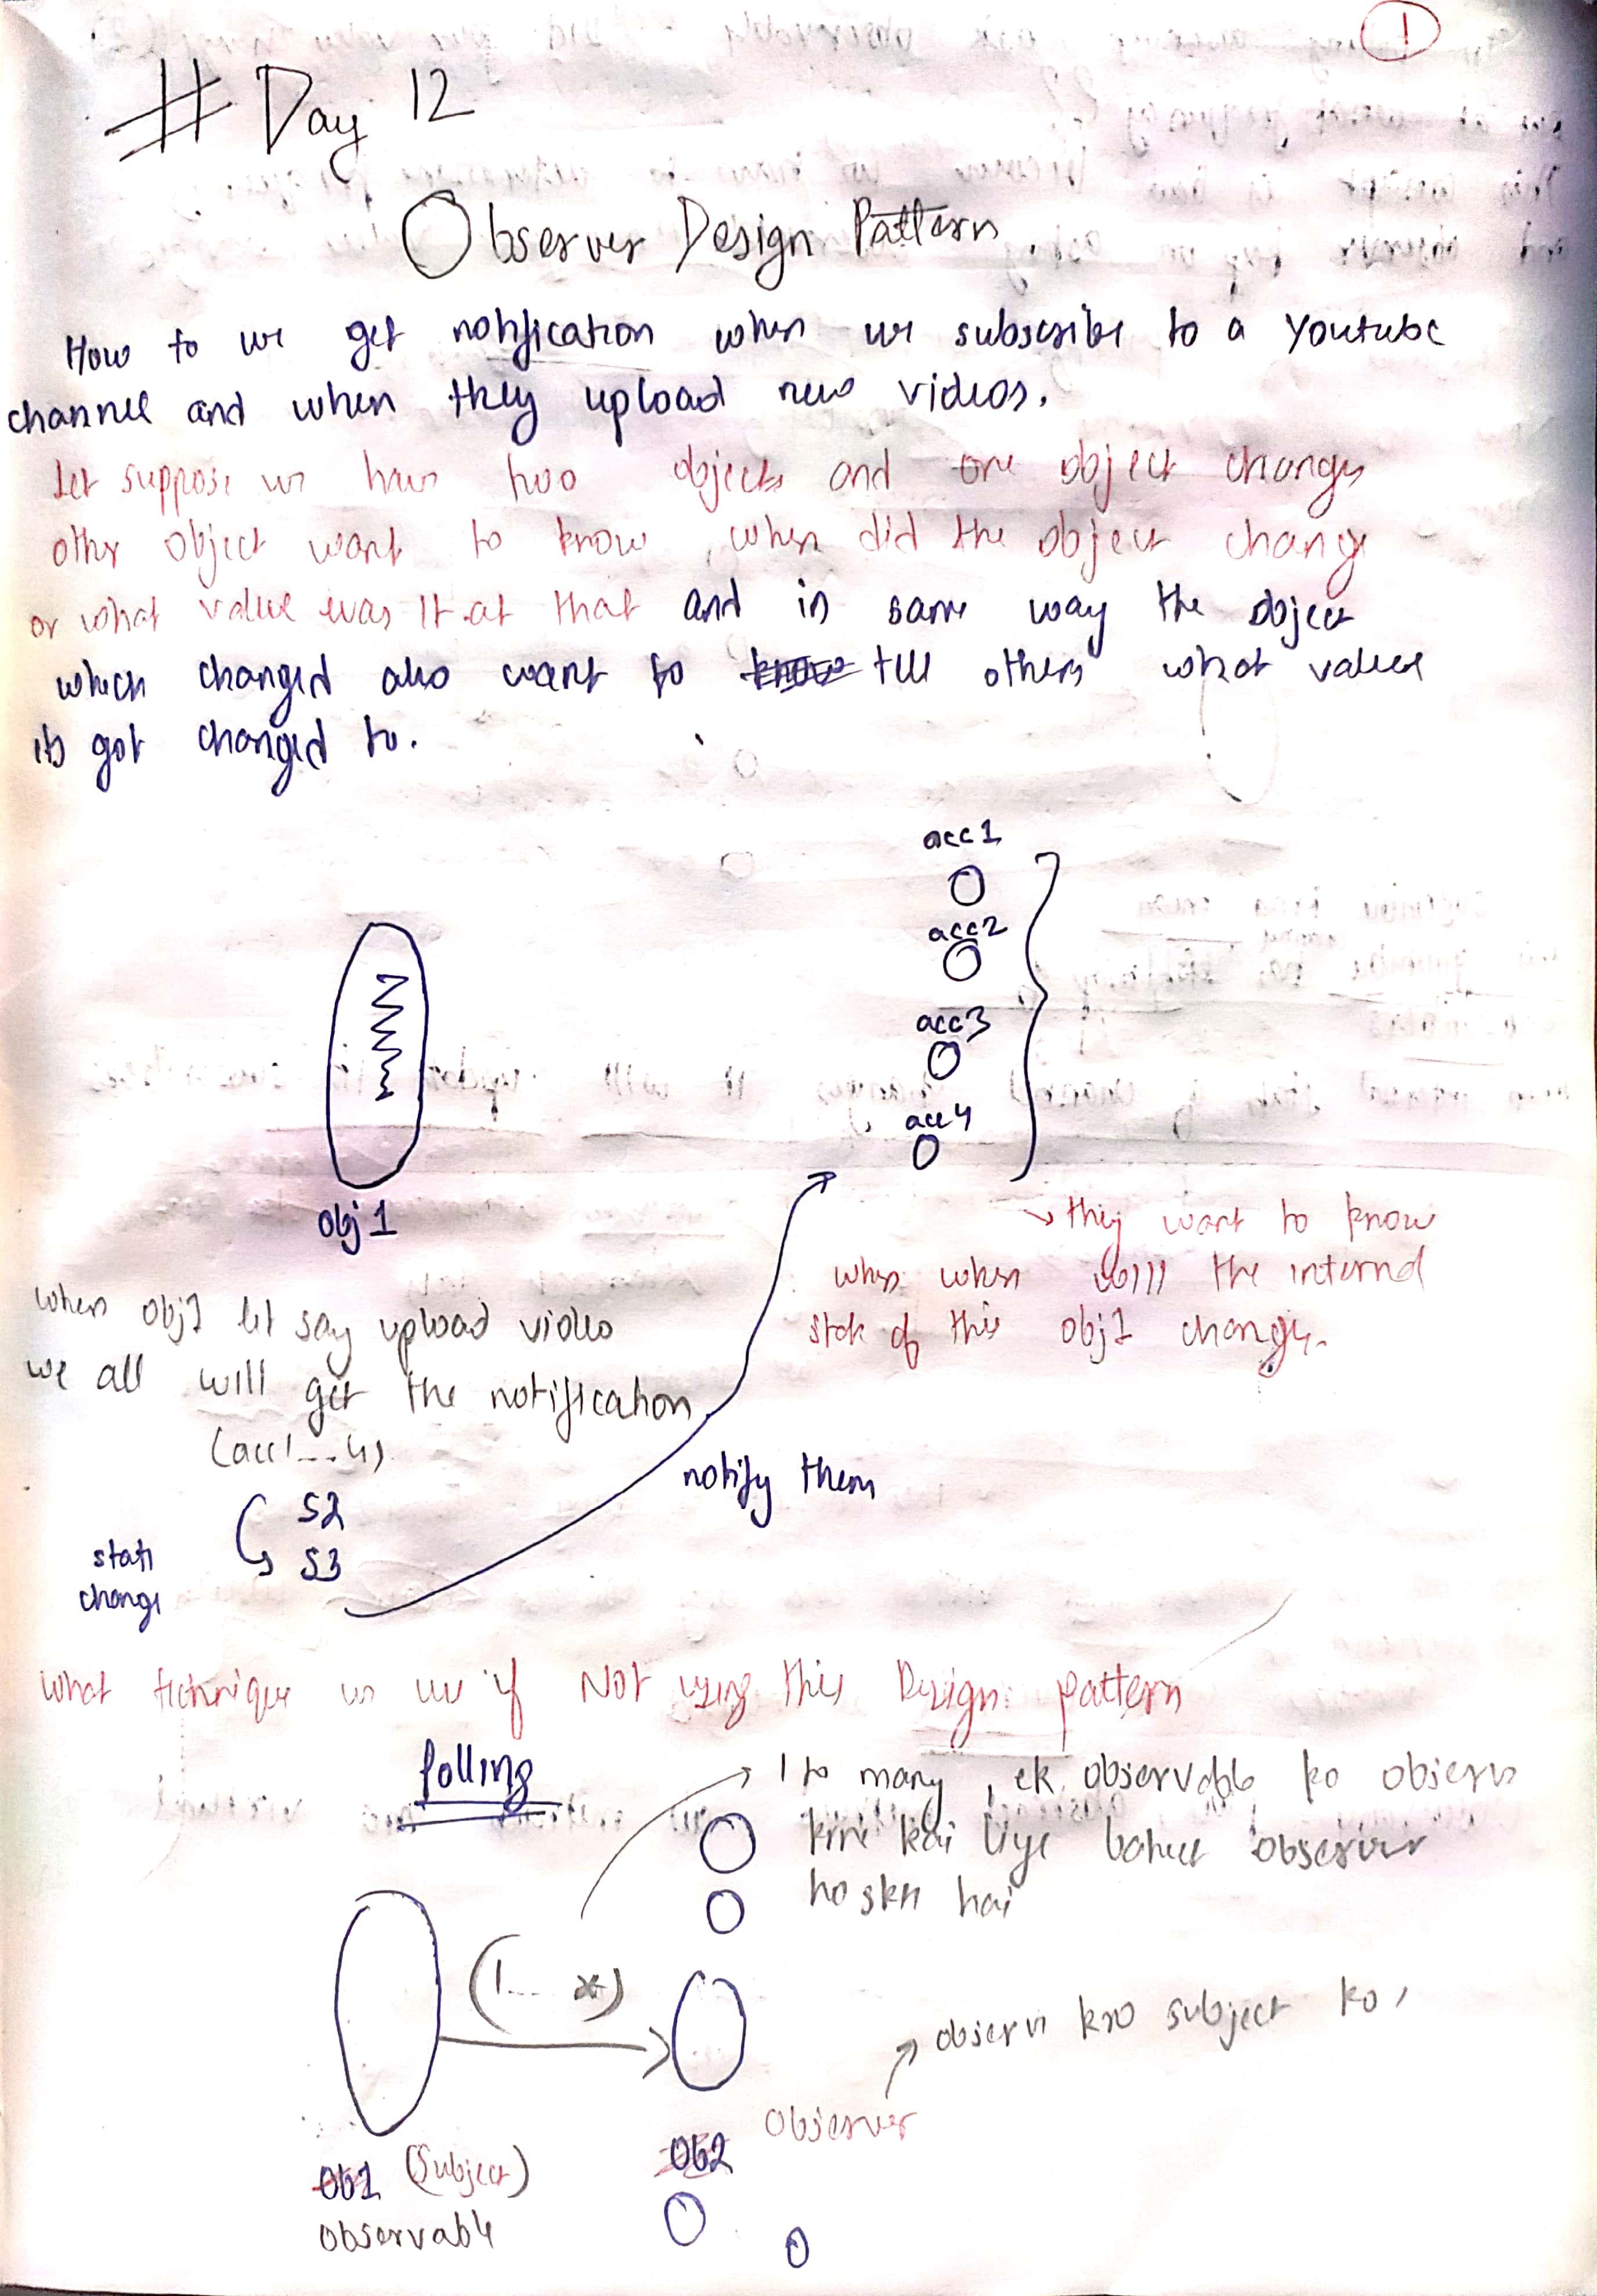 1
# Day 12
Observer Design Pattern
How to we get notification when we subscribe to a Youtube
channel and when they upload new videos.
let suppose we have two objects and one object changes
other object want to know, when did the object change
or what value was it at that and in same way the object
which changed also want to know tell others what value
its got changed to.
acc1
acc2
acc3
acc4
obj1
→ they want to know
when when will the internal
state of this obj1 change.
when obj1 let say upload video
we all will get the notification
(acc1...4)
notify them
S2
S3
state
change
What technique we use if NOT using this Design pattern
Polling
→ 1 to many, ek observable ko observe
krne kai liye bahut observer
ho skte hai
(1... *)
→ observe kro subject ko,
Observer
Ob1 (Subject)
observable
Ob2